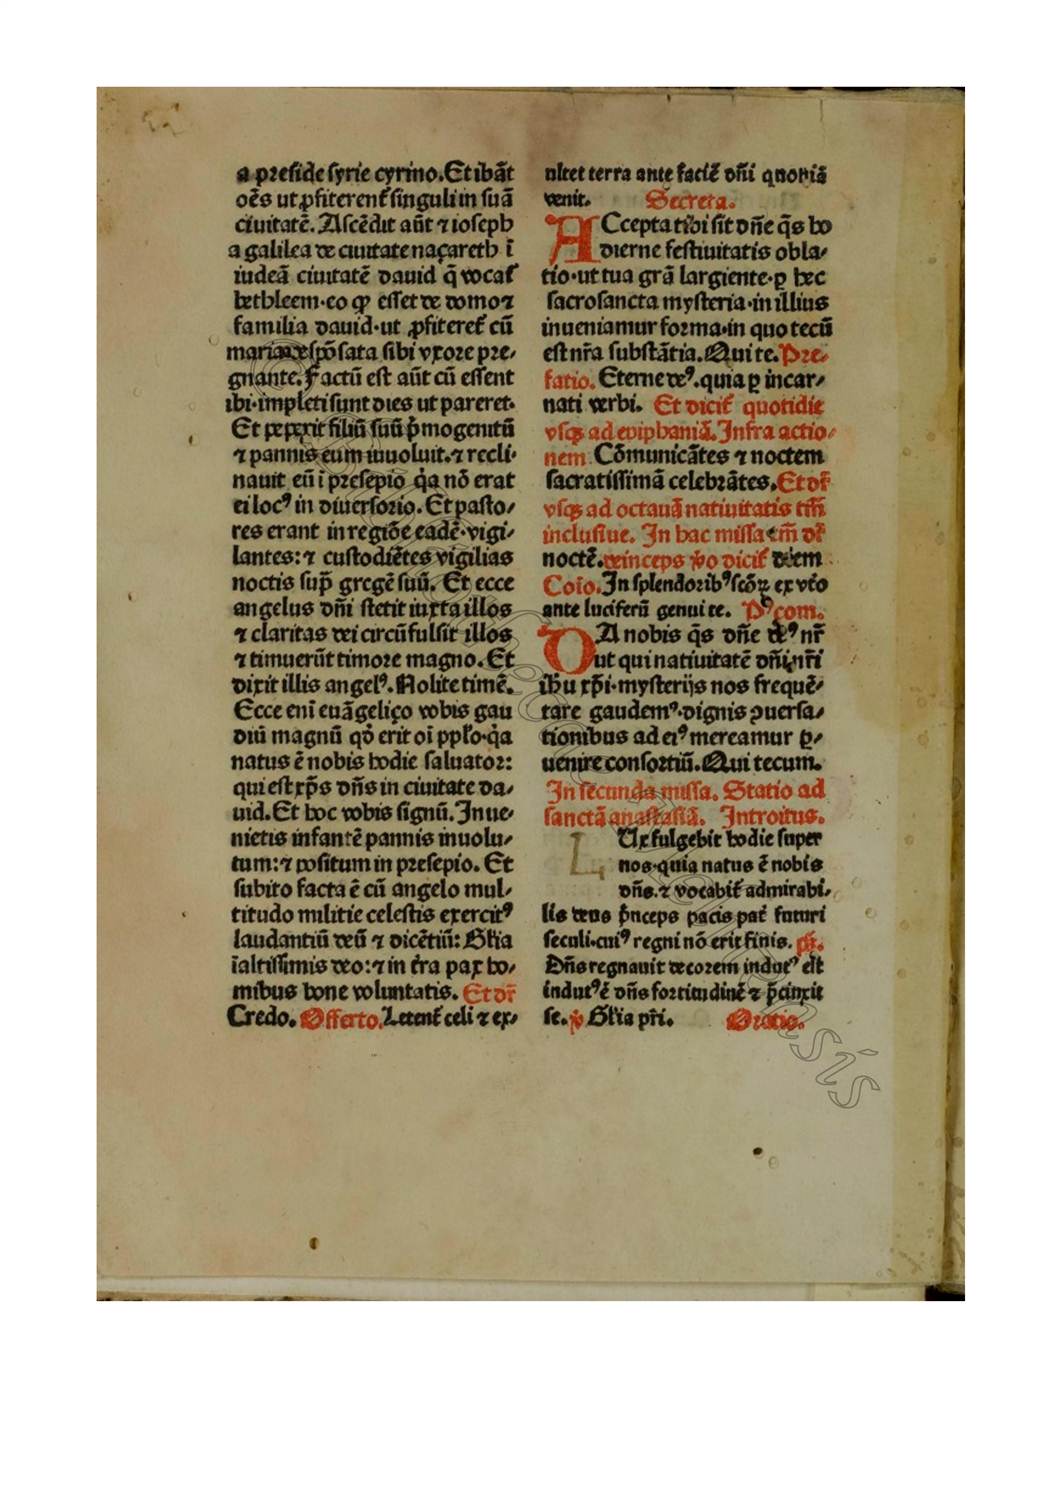 a preside syrie cyrino. Et ibāt
oēs ut ꝓfiterent᷑ singuli in suā
ciuitatē. Ascēdit aūt ⁊ ioseph
a galilea de ciuitate naçareth ī
iudeā ciuitatē dauid q̄ vocat᷑
bethleem·eo ꝙ esset de domo ⁊
familia dauid·ut ꝓfiteret᷑ cū
maria despōsata sibi vxore pre⸗
gnante. Factū est aūt cū essent
ibi·impleti sunt dies ut pareret.
Et peperit filiū suū p̄mogenitū
⁊ pannis eum inuoluit.⁊ recli⸗
nauit eū ī presepio q̇a nō erat
ei locꝰ in diuersorio. Et pasto⸗
res erant in regiōe eadē·vigi⸗
lantes: ⁊ custodiētes vigilias
noctis sup̄ gregē suū. Et ecce
angelus dn̄i stetit iuxta illos
⁊ claritas dei circūfulsit illos
⁊ timuerūt timore magno. Et
dixit illis angelꝰ. Nolite timē.
Ecce enī euāgeliço vobis gau
diū magnū qḋ erit oī pplo·q̇a
natus ē nobis hodie saluator:
qui est xp̄s dn̄s in ciuitate da⸗
uid. Et hoc vobis signū. Inue⸗
nietis infantē pannis inuolu⸗
tum: ⁊ positum in presepio. Et
subito facta ē cū angelo mul⸗
titudo militie celestis exercitꝰ
laudantiū deū ⁊ dicētiū: Gl̄ia
īaltissimis deo: ⁊ in t̄ra pax ho⸗
mibus bone voluntatis. Et dr̄
Credo. Offerto. Letent᷑ celi ⁊ ex⸗
ultet terra ante faciē dn̄i quoniā
venit. Secreta.
ACcepta tibi sit dn̄e q̄s ho
dierne festiuitatis obla⸗
tio·ut tua grā largiente·ꝑ hec
sacrosancta mysteria·in illius
inueniamur forma·in quo tecū
est nr̄a substātia. Qui te. Pre⸗
fatio. Eterne deꝰ. quia ꝑ incar⸗
nati verbi. Et dicit᷑ quotidie
vsqꝫ ad epiphaniā. Infra actio⸗
nem Cōmunicātes ⁊ noctem
sacratissimā celebrātes. Et dr̄
vsqꝫ ad octauā natiuitatis
inclusiue. In hac missa tm̄ dr̄
noctē. deinceps ṽo dicit᷑ diem
Coīo. In splendoribꝰ scōꝝ ex vt̄o
ante luciferū genui te. Pꝰcom.
DA nobis q̄s dn̄e deꝰ nr̄
ut qui natiuitatē dn̄i nr̄i
ih̄u xp̄i·mysterijs nos frequē⸗
tare gaudemꝰ·dignis ꝯuersa⸗
tionibus ad eiꝰ mereamur ꝑ⸗
uenire consortiū. Qui tecum.
In secunda missa. Statio ad
sanctā anastasiā. Introitus.
LUx fulgebit hodie super
nos·quia natus ē nobis
dn̄s. ⁊ vocabit᷑ admirabi⸗
lis deus p̄nceps pacis pat᷑ futuri
seculi·cuiꝰ regni nō erit finis. ps̄.
Dn̄s regnauit decorem indutꝰ est
indutꝰ ē dn̄s fortitudinē ⁊ p̄cinxit
se. ṽ Gl̄ia pr̄i. Oratio.